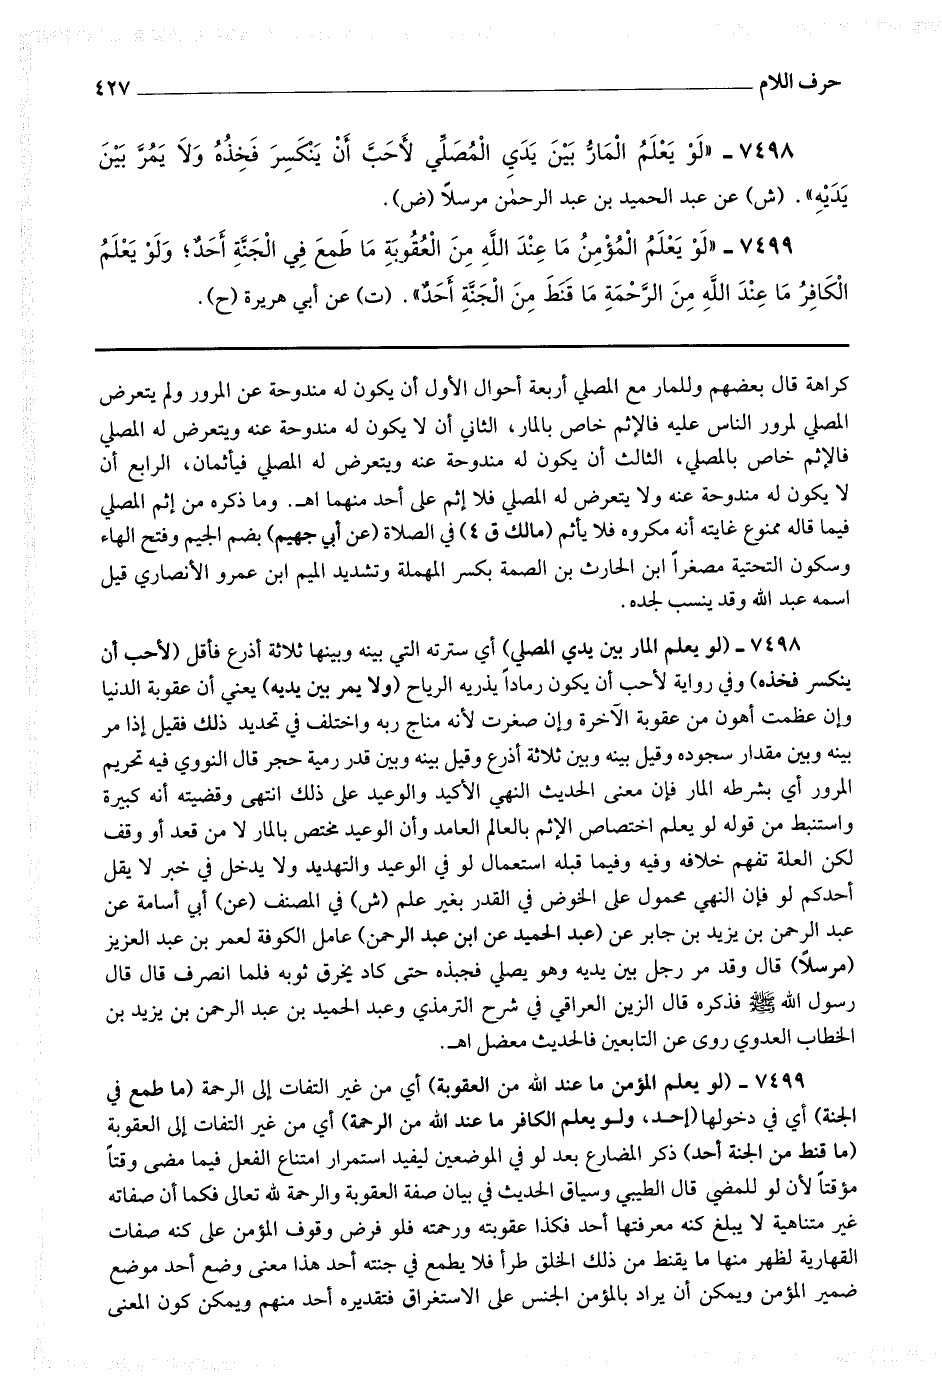 حرف اللام ٤٢٧
٧٤٩٨ ـ «لَوْ يَعْلَمُ الْمَارُّ بَيْنَ يَدَيِ الْمُصَلِّي لَأَحَبَّ أَنْ يَنْكَسِرَ فَخِذُهُ وَلَا يَمُرَّ بَيْنَ
يَدَيْهِ». (ش) عن عبد الحميد بن عبد الرحمٰن مرسلاً (ض).
٧٤٩٩ ـ «لَوْ يَعْلَمُ الْمُؤْمِنُ مَا عِنْدَ اللَّهِ مِنَ الْعُقُوبَةِ مَا طَمِعَ فِي الْجَنَّةِ أَحَدٌ؛ وَلَوْ يَعْلَمُ
الْكَافِرُ مَا عِنْدَ اللَّهِ مِنَ الرَّحْمَةِ مَا قَنَطَ مِنَ الْجَنَّةِ أَحَدٌ». (ت) عن أبي هريرة (ح).
كراهة قال بعضهم وللمار مع المصلي أربعة أحوال الأول أن يكون له مندوحة عن المرور ولم يتعرض
المصلي لمرور الناس عليه فالإثم خاص بالمار، الثاني أن لا يكون له مندوحة عنه ويتعرض له المصلي
فالإثم خاص بالمصلي، الثالث أن يكون له مندوحة عنه ويتعرض له المصلي فيأثمان، الرابع أن
لا يكون له مندوحة عنه ولا يتعرض له المصلي فلا إثم على أحد منهما اهـ. وما ذكره من إثم المصلي
فيما قاله ممنوع غايته أنه مكروه فلا يأثم (مالك ق ٤) في الصلاة (عن أبي جهيم) بضم الجيم وفتح الهاء
وسكون التحتية مصغراً ابن الحارث بن الصمة بكسر المهملة وتشديد الميم ابن عمرو الأنصاري قيل
اسمه عبد الله وقد ينسب لجده.
٧٤٩٨ ـ (لو يعلم المار بين يدي المصلي) أي سترته التي بينه وبينها ثلاثة أذرع فأقل (لأحب أن
ينكسر فخذه) وفي رواية لأحب أن يكون رماداً يذريه الرياح (ولا يمر بين يديه) يعني أن عقوبة الدنيا
وإن عظمت أهون من عقوبة الآخرة وإن صغرت لأنه مناج ربه واختلف في تحديد ذلك فقيل إذا مر
بينه وبين مقدار سجوده وقيل بينه وبين ثلاثة أذرع وقيل بينه وبين قدر رمية حجر قال النووي فيه تحريم
المرور أي بشرطه المار فإن معنى الحديث النهي الأكيد والوعيد على ذلك انتهى وقضيته أنه كبيرة
واستنبط من قوله لو يعلم اختصاص الإثم بالعالم العامد وأن الوعيد مختص بالمار لا من قعد أو وقف
لكن العلة تفهم خلافه وفيه وفيما قبله استعمال لو في الوعيد والتهديد ولا يدخل في خبر لا يقل
أحدكم لو فإن النهي محمول على الخوض في القدر بغير علم (ش) في المصنف (عن) أبي أسامة عن
عبد الرحمن بن يزيد بن جابر عن (عبد الحميد عن ابن عبد الرحمن) عامل الكوفة لعمر بن عبد العزيز
(مرسلاً) قال وقد مر رجل بين يديه وهو يصلي فجبذه حتى كاد يخرق ثوبه فلما انصرف قال قال
رسول الله ﷺ فذكره قال الزين العراقي في شرح الترمذي وعبد الحميد بن عبد الرحمن بن يزيد بن
الخطاب العدوي روى عن التابعين فالحديث معضل اهـ.
٧٤٩٩ ـ (لو يعلم المؤمن ما عند الله من العقوبة) أي من غير التفات إلى الرحمة (ما طمع في
الجنة) أي في دخولها (إحد، ولو يعلم الكافر ما عند الله من الرحمة) أي من غير التفات إلى العقوبة
(ما قنط من الجنة أحد) ذكر المضارع بعد لو في الموضعين ليفيد استمرار امتناع الفعل فيما مضى وقتاً
مؤقتاً لأن لو للمضي قال الطيبي وسياق الحديث في بيان صفة العقوبة والرحمة لله تعالى فكما أن صفاته
غير متناهية لا يبلغ كنه معرفتها أحد فكذا عقوبته ورحمته فلو فرض وقوف المؤمن على كنه صفات
القهارية لظهر منها ما يقنط من ذلك الخلق طرأ فلا يطمع في جنته أحد هذا معنى وضع أحد موضع
ضمير المؤمن ويمكن أن يراد بالمؤمن الجنس على الاستغراق فتقديره أحد منهم ويمكن كون المعنى